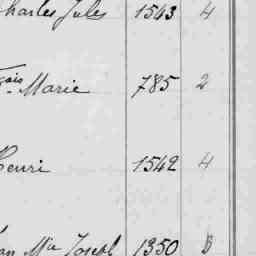 Charles Jules 1543 4
çais Marie 785 2
Henri 1542 4
Mie Joseph 1350